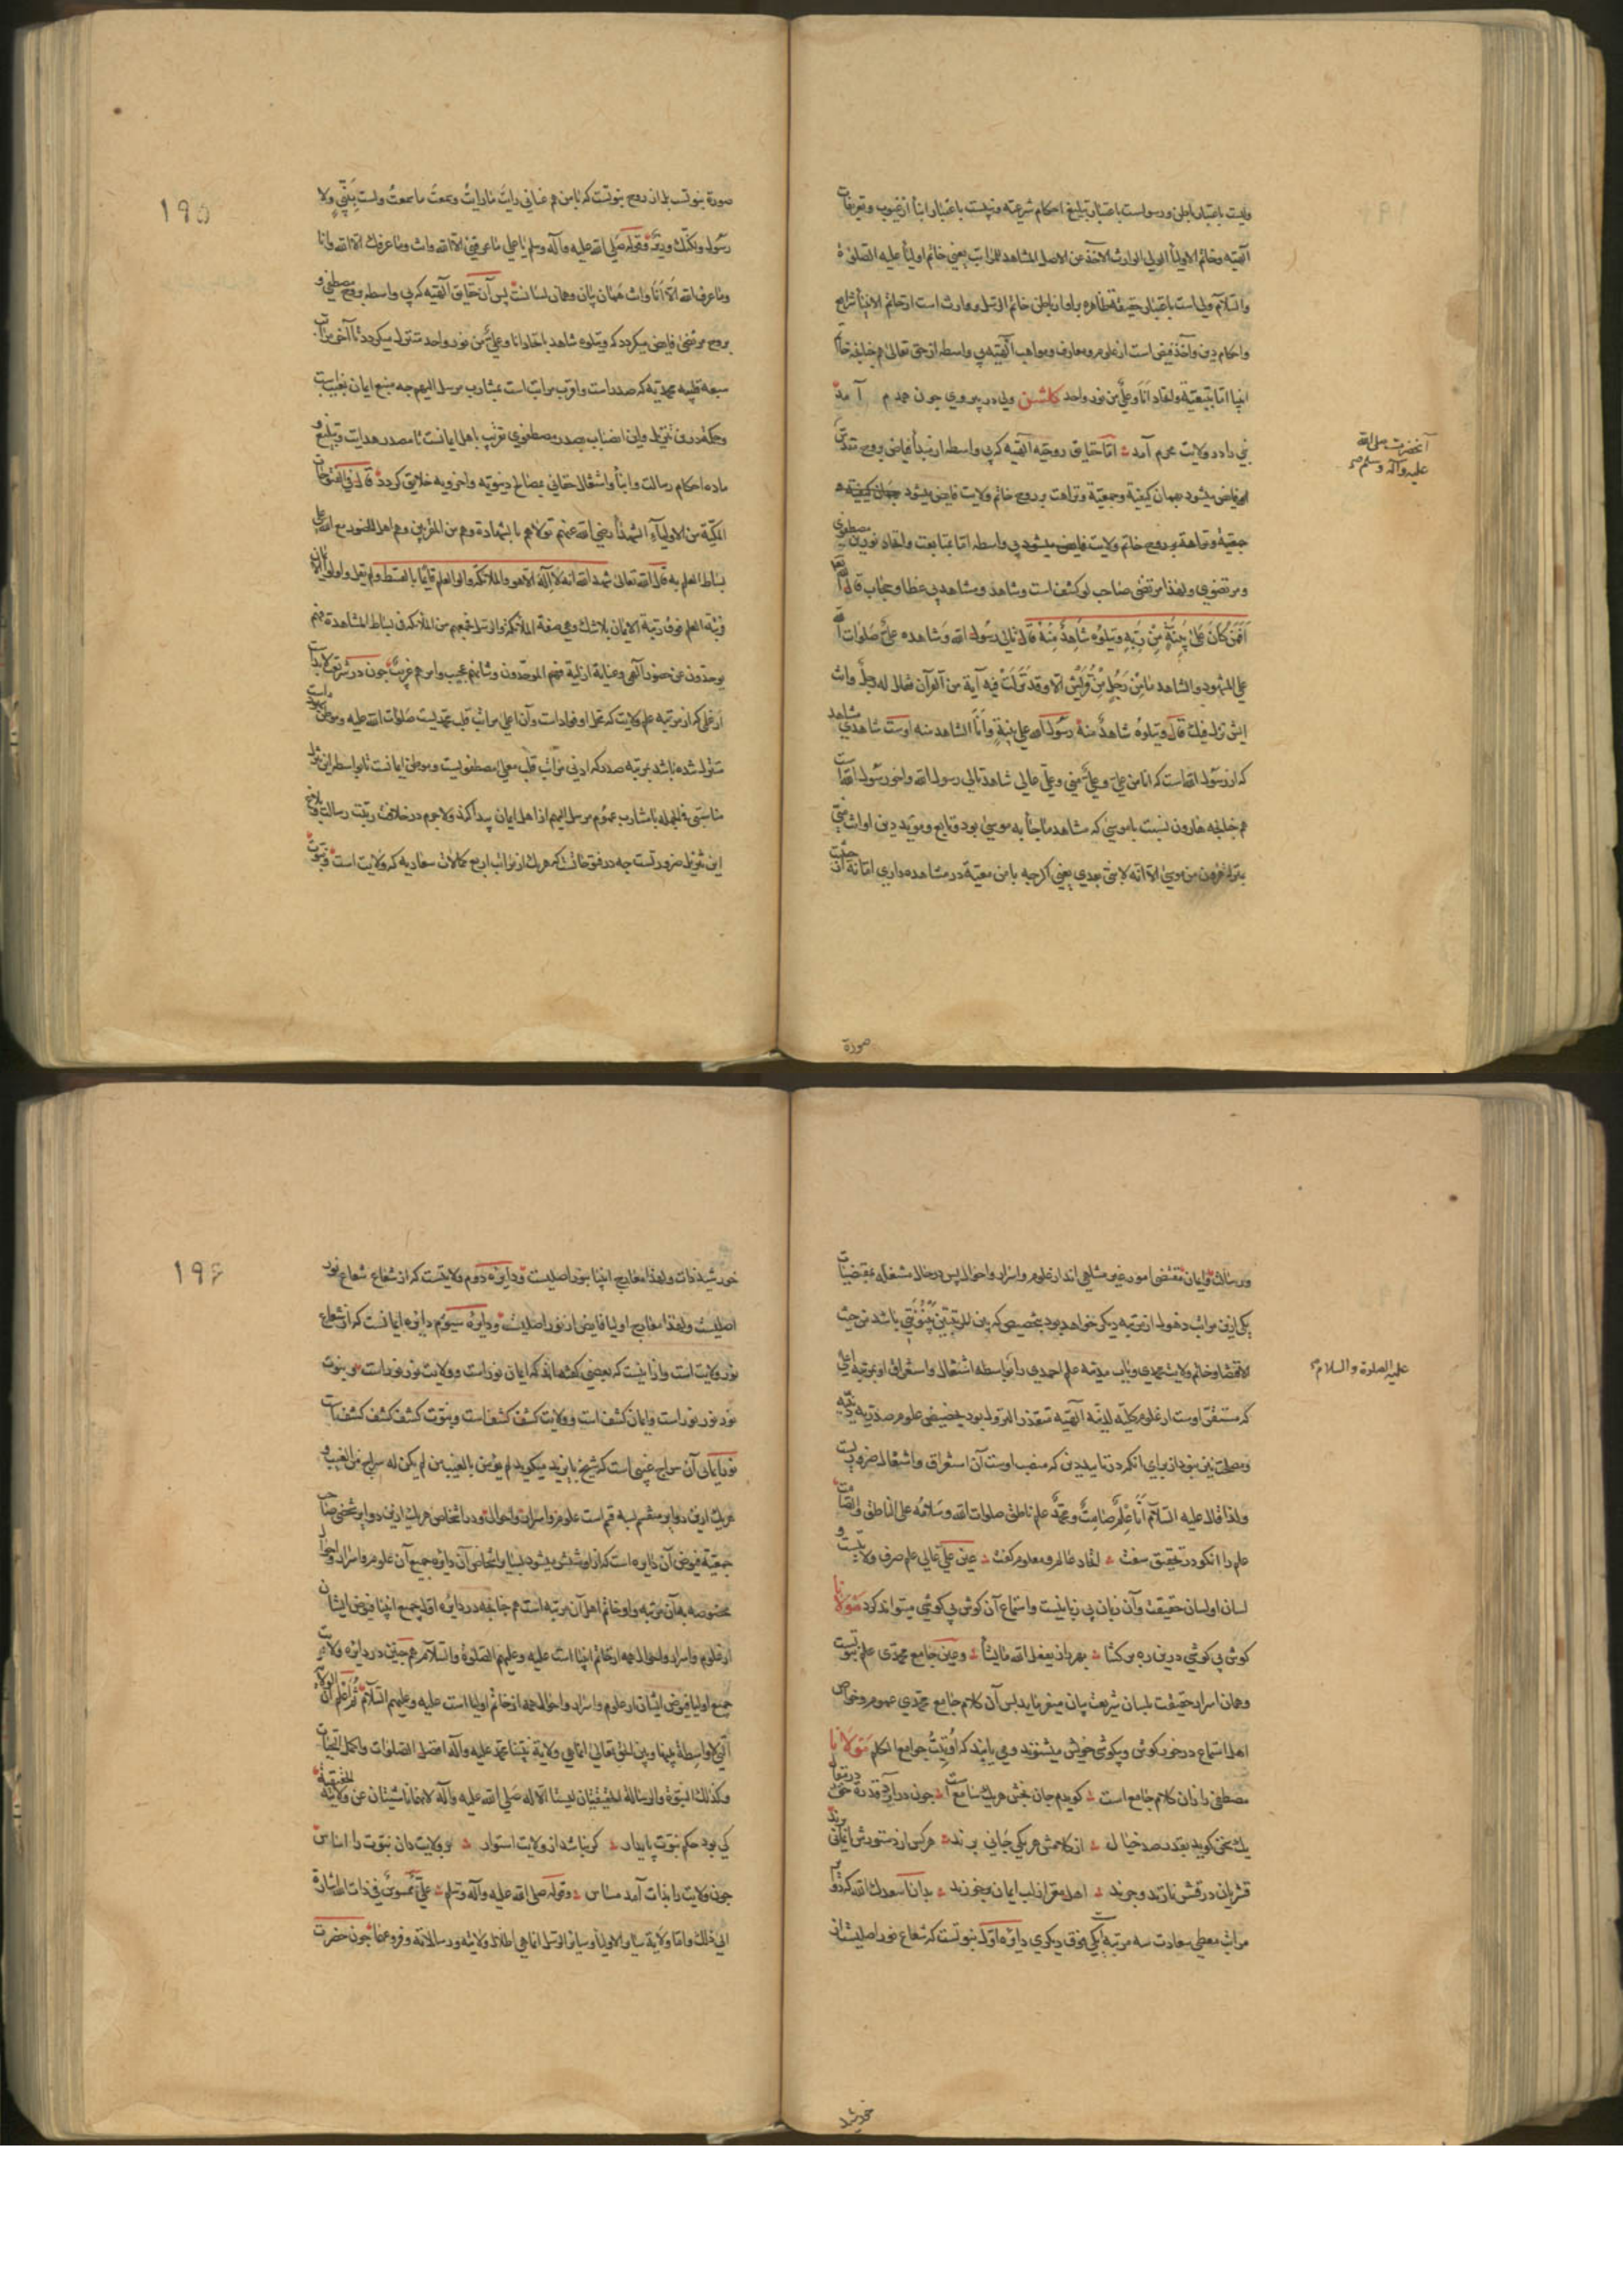 ولیست باعتبار باطن و رسولست باعتبار تبلیغ احکام شرعیه و نبیست باعتبار انبأ از غیوب و تعریفات
آلهیه و خاتم الاولیأ الولی الوارث الآخذ عن الاصل المشاهد للمراتب یعنی خاتم اولیأ علیه الصلوة
والسلام ولی است باعتبار حقیقة ظاهره براو از باطن خاتم الرسل و وارث است از خاتم الانبیأ شرایع
و احکام دین و آخذ فیض است از علوم و معارف و مواهب آلهیه بی واسطه از حق تعالی هم چنانچه خاتم
انبیا اما بتبعیة و اتحاد اَنَا وعلیٌّ من نور واحد کلشن ولی در پیروی چون همدم آمد
نبی را در ولایت محرم آمد اما حقایق روحیه آلهیه که بی واسطه از مبدأ فیاض بروح مقدس
آنحضرت صلی الله
علیه وآله وسلم
فایض میشود بهمان کیفیة و جمعیة و نزاهت بر روح خاتم ولایت فایض میشود
جمعیة و نزاهة بر روح خاتم ولایت فایض میشود بی واسطه اما بمتابعت و اتحاد نورین مصطفوی
و مرتضوی و لهذا مرتضی صاحب لو کشف است و شاهد و مشاهد بی غطا و حجاب قال الله تعالی
اَفَمَنْ کَانَ عَلیٰ بَیِّنَةٍ مِنْ رَبِّهِ وَیَتْلُوُه شَاهِدٌ مِنْهُ قال نالی رسول الله وشاهده علیٌّ صلوات الله
علی المشهود والشاهد مامِنْ رَجُلٍ مِنْ قُرَیْشٍ الا وقد نَزَلَتْ فیه آیة من القرآن فقال له رجلٌ وانت
ایش نزل فیك قال ویتلوه شاهدٌ منه رسول الله علی بینةٍ وانا الشاهد منه اوست شاهدی شاهد
که از رسول الله است که انا من علی وعلیٌّ منی وعلی عالی شاهد تالی رسول الله واخو رسول الله است
هم چنانچه هارون نسبت با موسی که مشاهد مناجأ به موسی بود و تابع و مؤید دین او انت منی
بمنزلة هرون من موسی الا انه لا نبی بعدی یعنی اکر چه با من معیة در مشاهده داری اما نه از حیث
صورة
۱۹۵
صورة نبوتست بل از روح نبوتست که با من هم عنانی رایتَ ما رایتُ وسمعتَ ما سمعتُ ولست بِنَبِّیٍ ولا
رسولٍ ولکنّك وزیرٌ وقوله صلی الله علیه وآله وسلم یا علی ما عرفنی الا الله وانت وما عرفك الا الله وانا
وما عرف الله الا انا وانت همان بیان و همان لسانست پس آن حقایق آلهیه که بی واسطه بروح مصطفی و
بروح مرتضی فایض میکردد که ویتلوه شاهد باتحاد انا وعلیٌّ من نور واحد متنزل میکردد تا آخر مراتب
سبعه قلبیه محمدیه که صدر است و اقرب مراتب است بمشارب مرسل الیهم چه منبع ایمان بغیبست
و حکمة درین تنزیل و این انضباب بصدر مصطفوی تقریب باهل ایمانست تا مصدر هدایت و تبلیغ و
ماده احکام رسالت و انبأ و اشتغال حقانی بمصالح دنیویه و اخرویه خلایق کردد قال فی الفتوحات
المکیة من الاولیاء الشهدأ رضی الله عنهم تولاهم بالشهادة وهم من المقربین وهم اهل الحضور مع الله علی
بساط العلم به قال الله تعالی شهد الله انه لا اله الا هو والملائکة واولوا العلم قائما بالقسط ولم یقل واولوا الایمان
فرتبة العلم فوق رتبة الایمان بلاشك وهی صفة الملائکة والرسل فجمعهم مع الملائکة فی بساط المشاهدة فهم
موحدون عن حضور آلهی وعنایة ازلیة فهم الموحدون وشانهم عجیب وامرهم غریبٌ چون در شرع ولایت
از علی که از مرتبه علم ولایت که محل او فوادست و آن اعلی مراتب قلب محمدیست صلوات الله علیه و موطن
متنزل شده باشد بمرتبه صدر که ادنی مراتب قلب معلی مصطفویست و موطن ایمانست تا بواسطه این تنزل
مناسبتی فی الجمله با مشارب عموم مرسل الیهم از اهل ایمان پیدا کند ولاجرم در خلافت رتبت رسالت و بلاغ
این تنزیل ضرورتست چه در فتوحات که هریك از مراتب اربع کمالات سعادیه که ولایت است و نبوت
و رسالت و ایمان مقتضی امور غیر متناهی اند از علوم و اسرار و احوال پس در حال مشغله بمقتضیات
یکی ازین مراتب ذهول از مرتبه دیکر خواهد بود بتخصیص که بین المرتبتین بَیْنُونَتِی باشد من حیث
الاقتضا و خاتم ولایت محمدی و باب مدینه علم احمدی را بواسطه اشتغال و استغراق او بمرتبه اعلی
علیه الصلوة والسلام
که مستقی اوست از علوم کلیه لدنیه آلهیه متعذر النزول بود بحضیض علوم صدریه
و مصلحت بین نبود از برای آنکه در تایید دین که منصب اوست آن استغراق و اشتغال ضروریست
ولذا قال علیه السلام اَنَا عِلْمٌ صَامِتٌ ومحمّدٌ علم ناطق صلوات الله وسلامه علی الناطق والصامت
علم را آنکو در تحقیق سفت اتحاد عالم و معلوم کفت عین علی عالی علم صرف ولایتست و
لسان او لسان حقیقت و آن زبان بی زبانیست و استماع آن کوش بی کوشی میتواند کرد مَوْلانا
کوش بی کوشی درین ره برکشا بهر راز یفعل الله ما یشأ و عین جامع محمدی علم نبوتست
و همان اسرار حقیقت بلسان شریعت بیان میفرماید پس آن کلام جامع محمدی عموم و خواص
اهل استماع در خور کوش و بیکوشی خویش میشنوند و می یابند که اُوتیتُ جوامع الکلم مَوْلانا
مصطفی را زان کلام جامع است کویدم جان بخش هریك سامع است چون در آید قدرة حق در مقال
یك سخن کوید بقدر صد خیال از کلامش هر یکی جانی برند هر کس از دستورش ایمانی برند
قشریان در قشر نازند و چرند اهل مغز از لب ایمان برخورند بدان اسعدك الله که ذو
مراتب معطی سعادت سه مرتبه است یکی فوق دیکری دایره اول نبوتست که شعاع نور اصلیست از
خورشید
۱۹۶
خورشید ذات و لهذا معارج انبیا بنور اصلیست و دایره دوم ولایتست که از شعاع شعاع نور
اصلیست و لهذا معارج اولیا فایض از نور اصلیست و دایره سیوم دایره ایمانست که از شعاع
نور ولایت است و ازاینست که بعضی کفته‌اند که ایمان نور است و ولایت نور نور است و نبوت
نور نور نور است و ایمان کشف است و ولایت کشف کشف است و نبوت کشف کشف کشف است
نور ایمانی آن سراج غیبی است که شیخ بایزید میکوید لم یؤمن بالغیب من لم یکن له سراج من الغیب و
هریك ازین دوایر منقسم بسه قسم است علوم و اسرار و احوال و در اشخاص هریك ازین دوایر شخصی صاحب
جمعیة فیوض آن دایره است که از او منشعب میشود بسایر اشخاص آن دایره جمیع آن علوم و اسرار و احوال
مخصوصه بآن مرتبه و او خاتم اهل آن مرتبه است هم چنانچه در دایره اول جمیع انبیا فیوض ایشان
از علوم و اسرار و احوال همه از خاتم انبیا است علیه وعلیهم الصلوة والسلام هم چنین در دایره ولایت
جمیع اولیا فیوض ایشان از علوم و اسرار و احوال همه از خاتم اولیا است علیه وعلیهم السلام ثم اعلم ان الولایة
التی لا واسطة بینها وبین الحق تعالی انما هی ولایة نبینا محمد علیه وآله افضل الصلوات واکمل التحیات
وکذلك النبوة والرسالة الحقیقیتان لیستا الا له صلی الله علیه وآله لانهما ناشیتان عن ولایته الحقیقیة
کی بود حکم نبوت پایدار کر نباشد از ولایت استوار بر ولایت دان نبوت را اساس
چون ولایت را بذات آمد مساس وقوله صلی الله علیه وآله وسلم علیٌّ ممسوسٌ فی ذات الله اشارة
الی ذلك واما ولایة سایر الاولیأ وسایر الرسل انما هی اظلال ولایته ورسالاته وفروعها چون حضرت